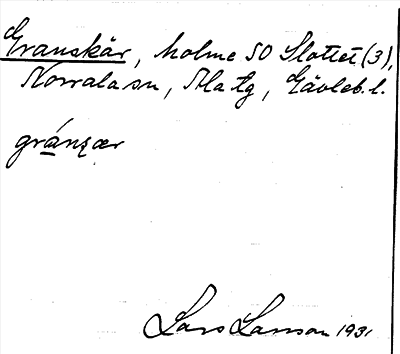 Granskär, holme SO Slottet (3),
Norrala sn, Ala tg, Gävleb. l.
gránʂær
Lars Larsson 1931